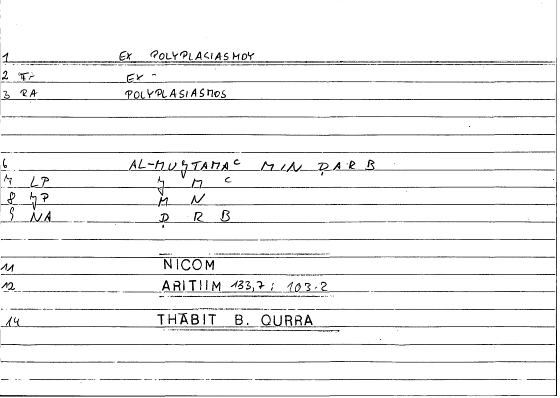 1 EX POLYPLACIASMOY
2 EX -
3 RA POLYPLASIASMOS
6 AL-MUǴTAMAᶜ MIN ḌARB
LP Ǵ M ᶜ
8 M N
9 NA Ḍ R B
11 NICOM
12 ARITIIM 133,7 ; 103.2
14 THĀBIT B. QURRA